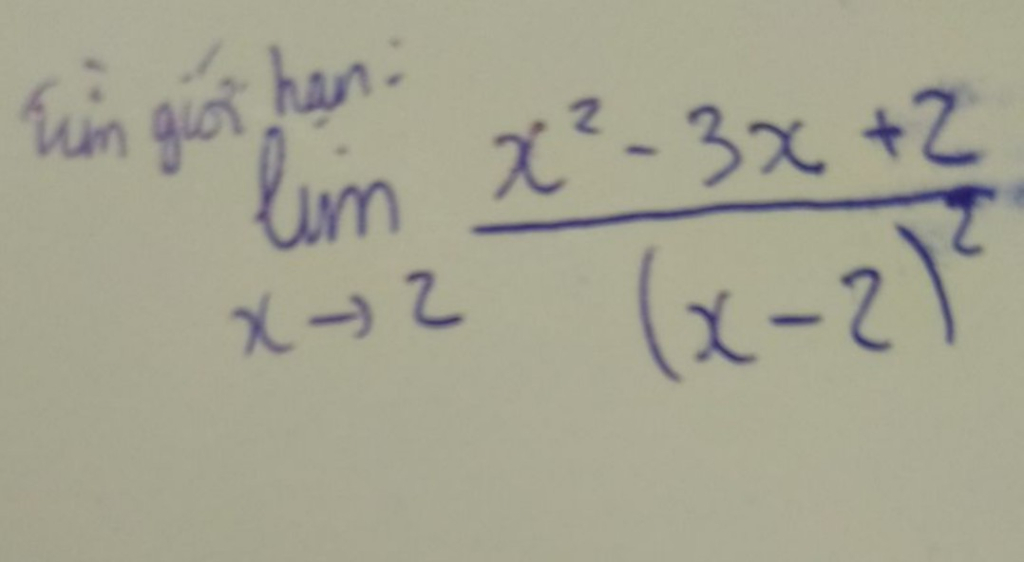 Tìm giới hạn:
lim x² - 3x + 2
x → 2 (x - 2)²